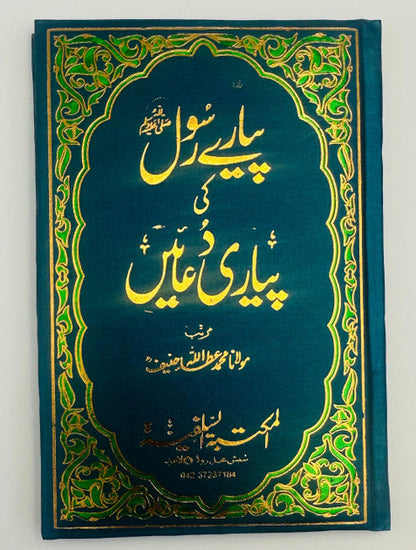 پیارے رسول ﷺ
کی
پیاری دُعائیں
مرتب
مولانا محمد عطاء اللہ حنیف
المکتبۃ السلفیۃ
شیش محل روڈ لاہور
042 37237184